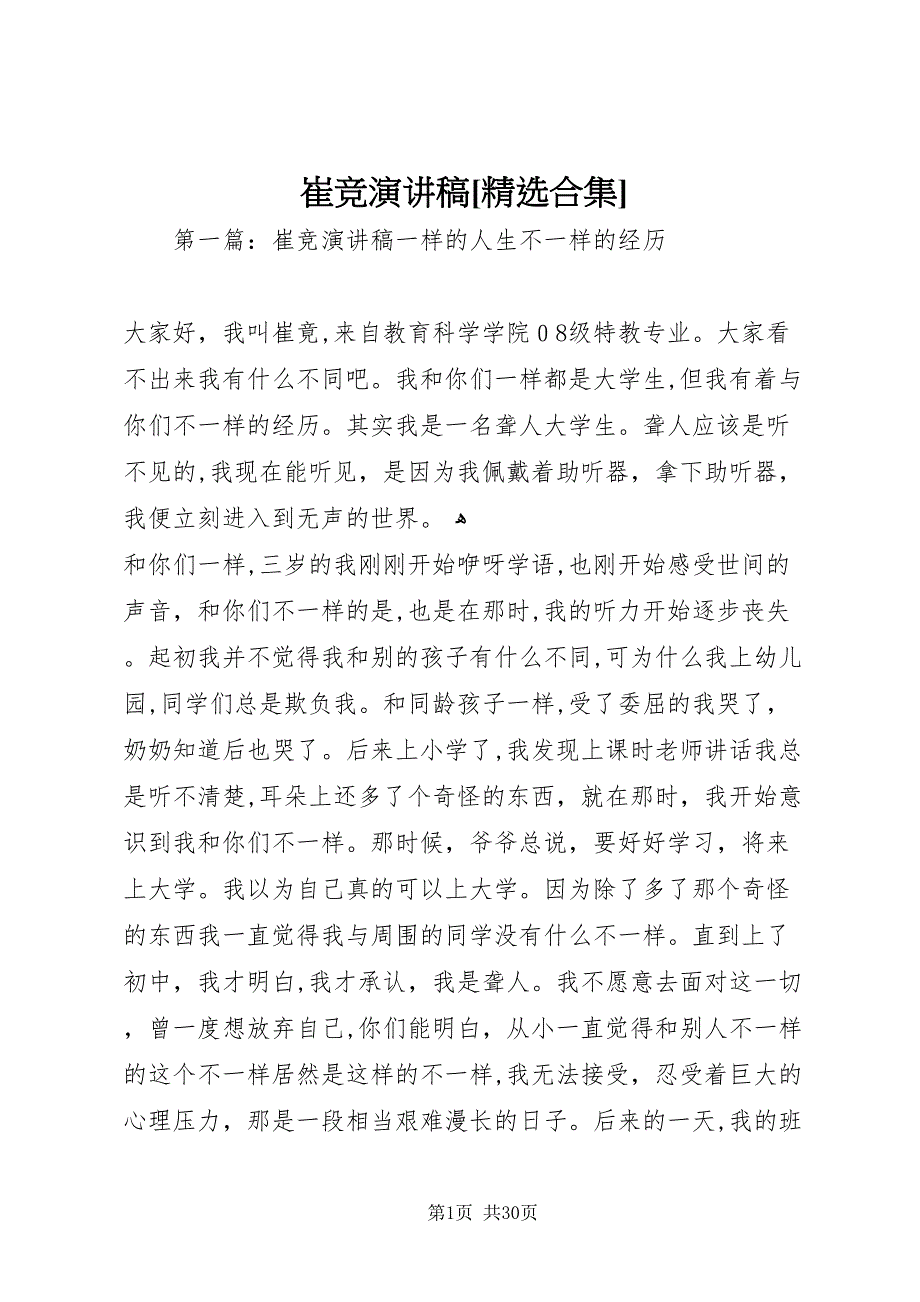 崔竞演讲稿[精选合集]
第一篇：崔竞演讲稿一样的人生不一样的经历
大家好，我叫崔竟,来自教育科学学院08级特教专业。大家看
不出来我有什么不同吧。我和你们一样都是大学生,但我有着与
你们不一样的经历。其实我是一名聋人大学生。聋人应该是听
不见的,我现在能听见，是因为我佩戴着助听器，拿下助听器，
我便立刻进入到无声的世界。 ﻫ
和你们一样,三岁的我刚刚开始咿呀学语,也刚开始感受世间的
声音，和你们不一样的是,也是在那时,我的听力开始逐步丧失
。起初我并不觉得我和别的孩子有什么不同,可为什么我上幼儿
园,同学们总是欺负我。和同龄孩子一样,受了委屈的我哭了，
奶奶知道后也哭了。后来上小学了,我发现上课时老师讲话我总
是听不清楚,耳朵上还多了个奇怪的东西，就在那时，我开始意
识到我和你们不一样。那时候，爷爷总说，要好好学习，将来
上大学。我以为自己真的可以上大学。因为除了多了那个奇怪
的东西我一直觉得我与周围的同学没有什么不一样。直到上了
初中，我才明白,我才承认，我是聋人。我不愿意去面对这一切
，曾一度想放弃自己,你们能明白，从小一直觉得和别人不一样
的这个不一样居然是这样的不一样,我无法接受，忍受着巨大的
心理压力，那是一段相当艰难漫长的日子。后来的一天,我的班
第1页 共30页